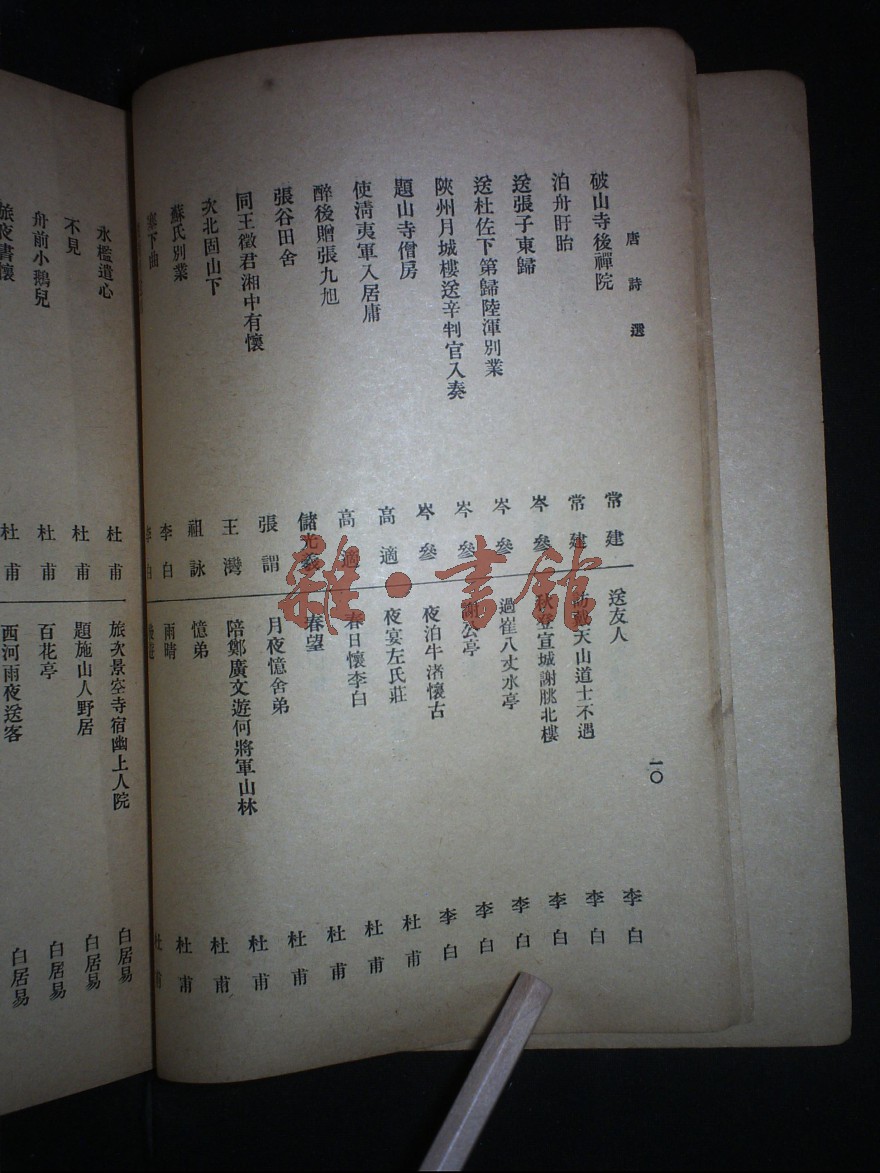 唐詩選
一〇
破山寺後禪院 常建
泊舟盱眙 常建
送張子東歸 岑參
送杜佐下第歸陸渾別業 岑參
陝州月城樓送辛判官入奏 岑參
題山寺僧房 岑參
使清夷軍入居庸 高適
醉後贈張九旭 高適
張谷田舍 儲光羲
同王徵君湘中有懷 張謂
次北固山下 王灣
蘇氏別業 祖詠
塞下曲 李白
李白
送友人 李白
訪戴天山道士不遇 李白
秋登宣城謝脁北樓 李白
過崔八丈水亭 李白
謝公亭 李白
夜泊牛渚懷古 李白
夜宴左氏莊 杜甫
春日懷李白 杜甫
春望 杜甫
月夜憶舍弟 杜甫
陪鄭廣文遊何將軍山林 杜甫
憶弟 杜甫
雨晴 杜甫
遊 杜甫
水檻遣心 杜甫
不見 杜甫
舟前小鵝兒 杜甫
旅夜書懷 杜甫
旅次景空寺宿幽上人院 白居易
題施山人野居 白居易
百花亭 白居易
西河雨夜送客 白居易
雜·書館